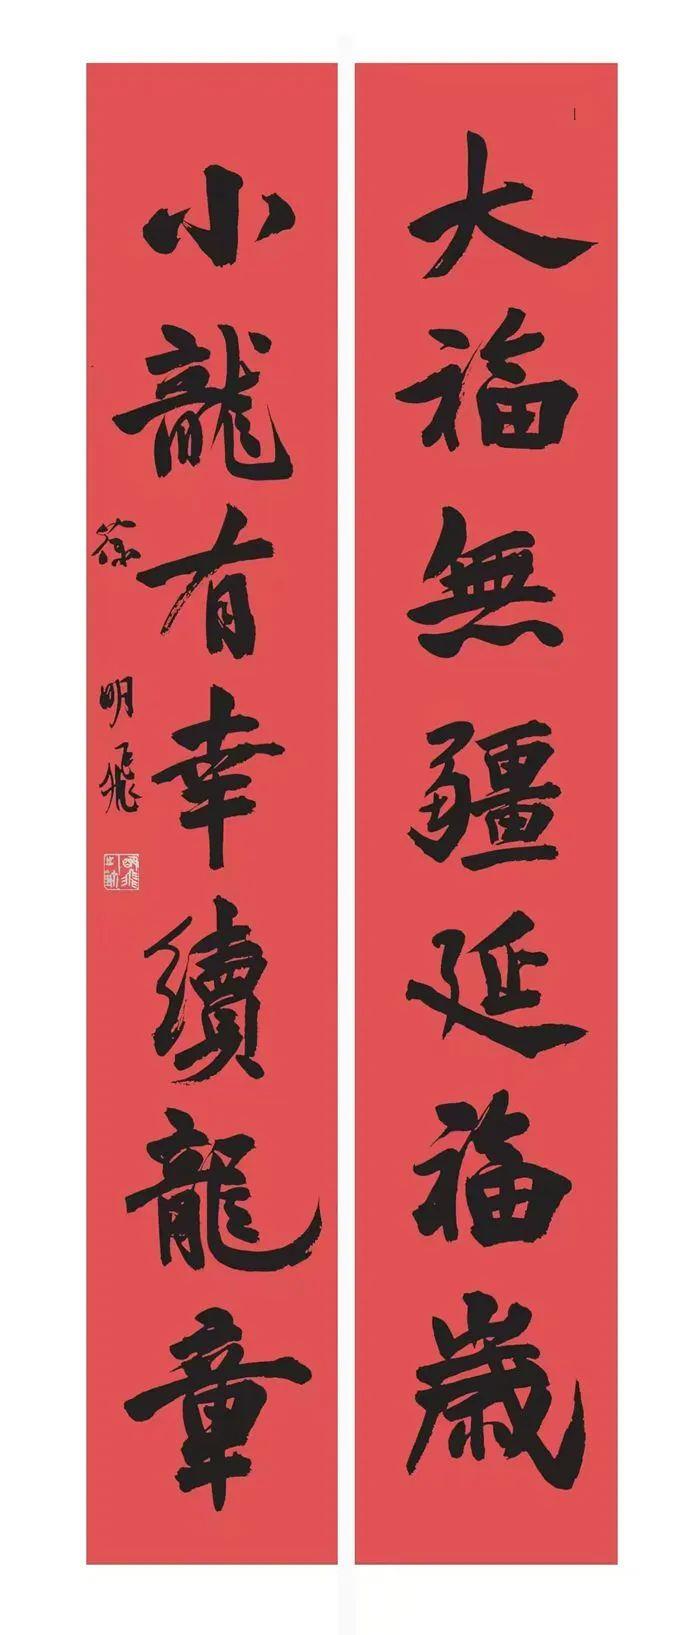 大福無疆延福歲
小龍有幸續龍章
明飛